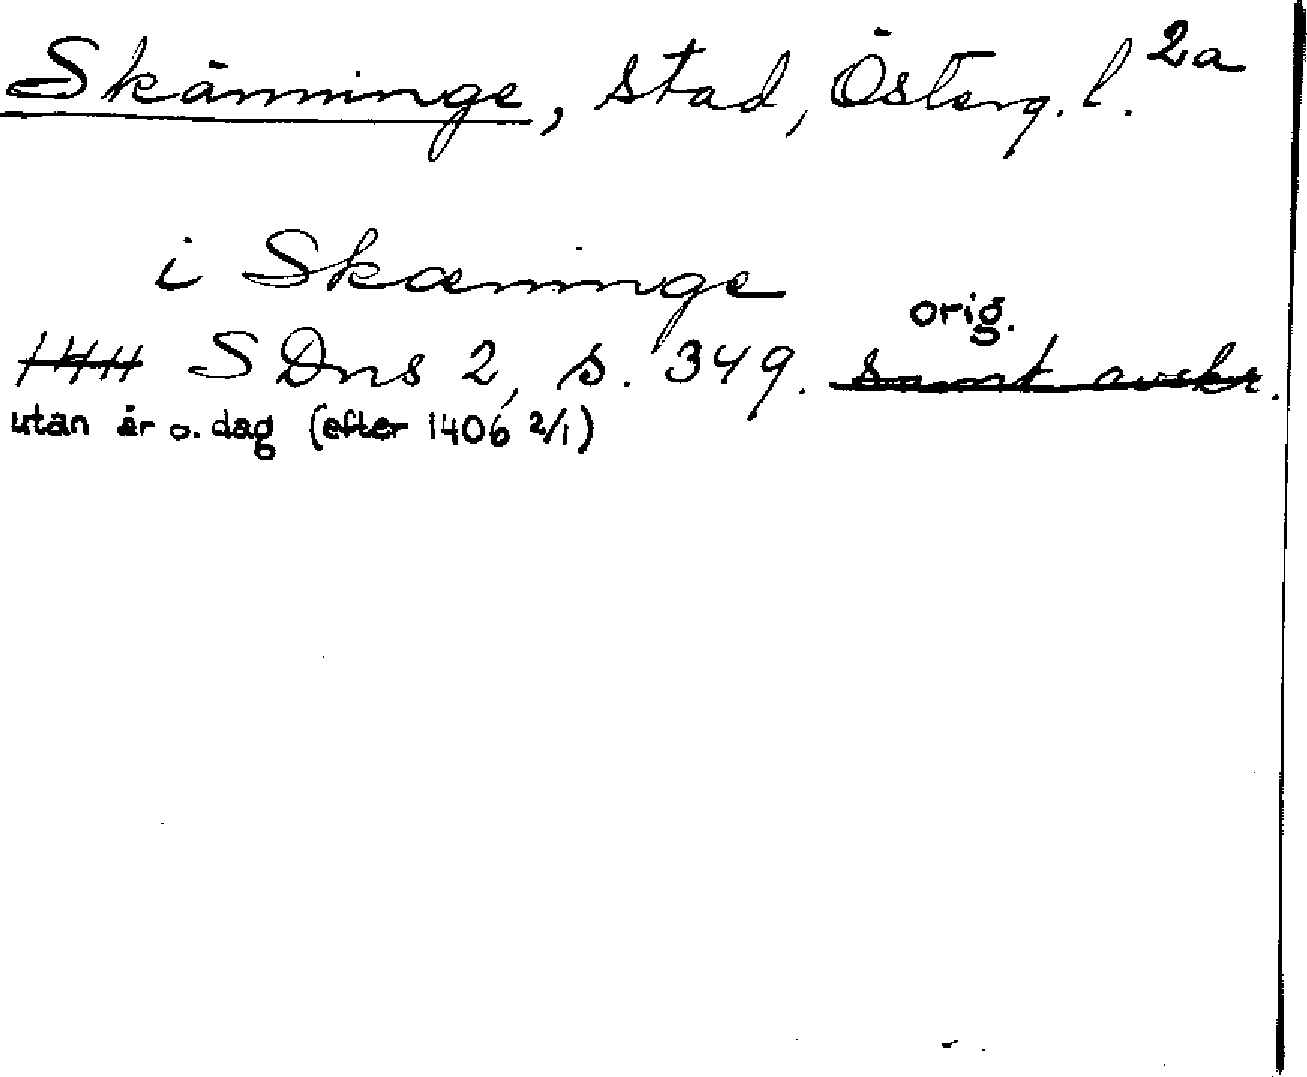 Skänninge, stad, Österg. l. 2a
i Skæninge
orig.
1411 SDns 2, s. 349. samt. avskr.
utan år o. dag (efter 1406 2/1)